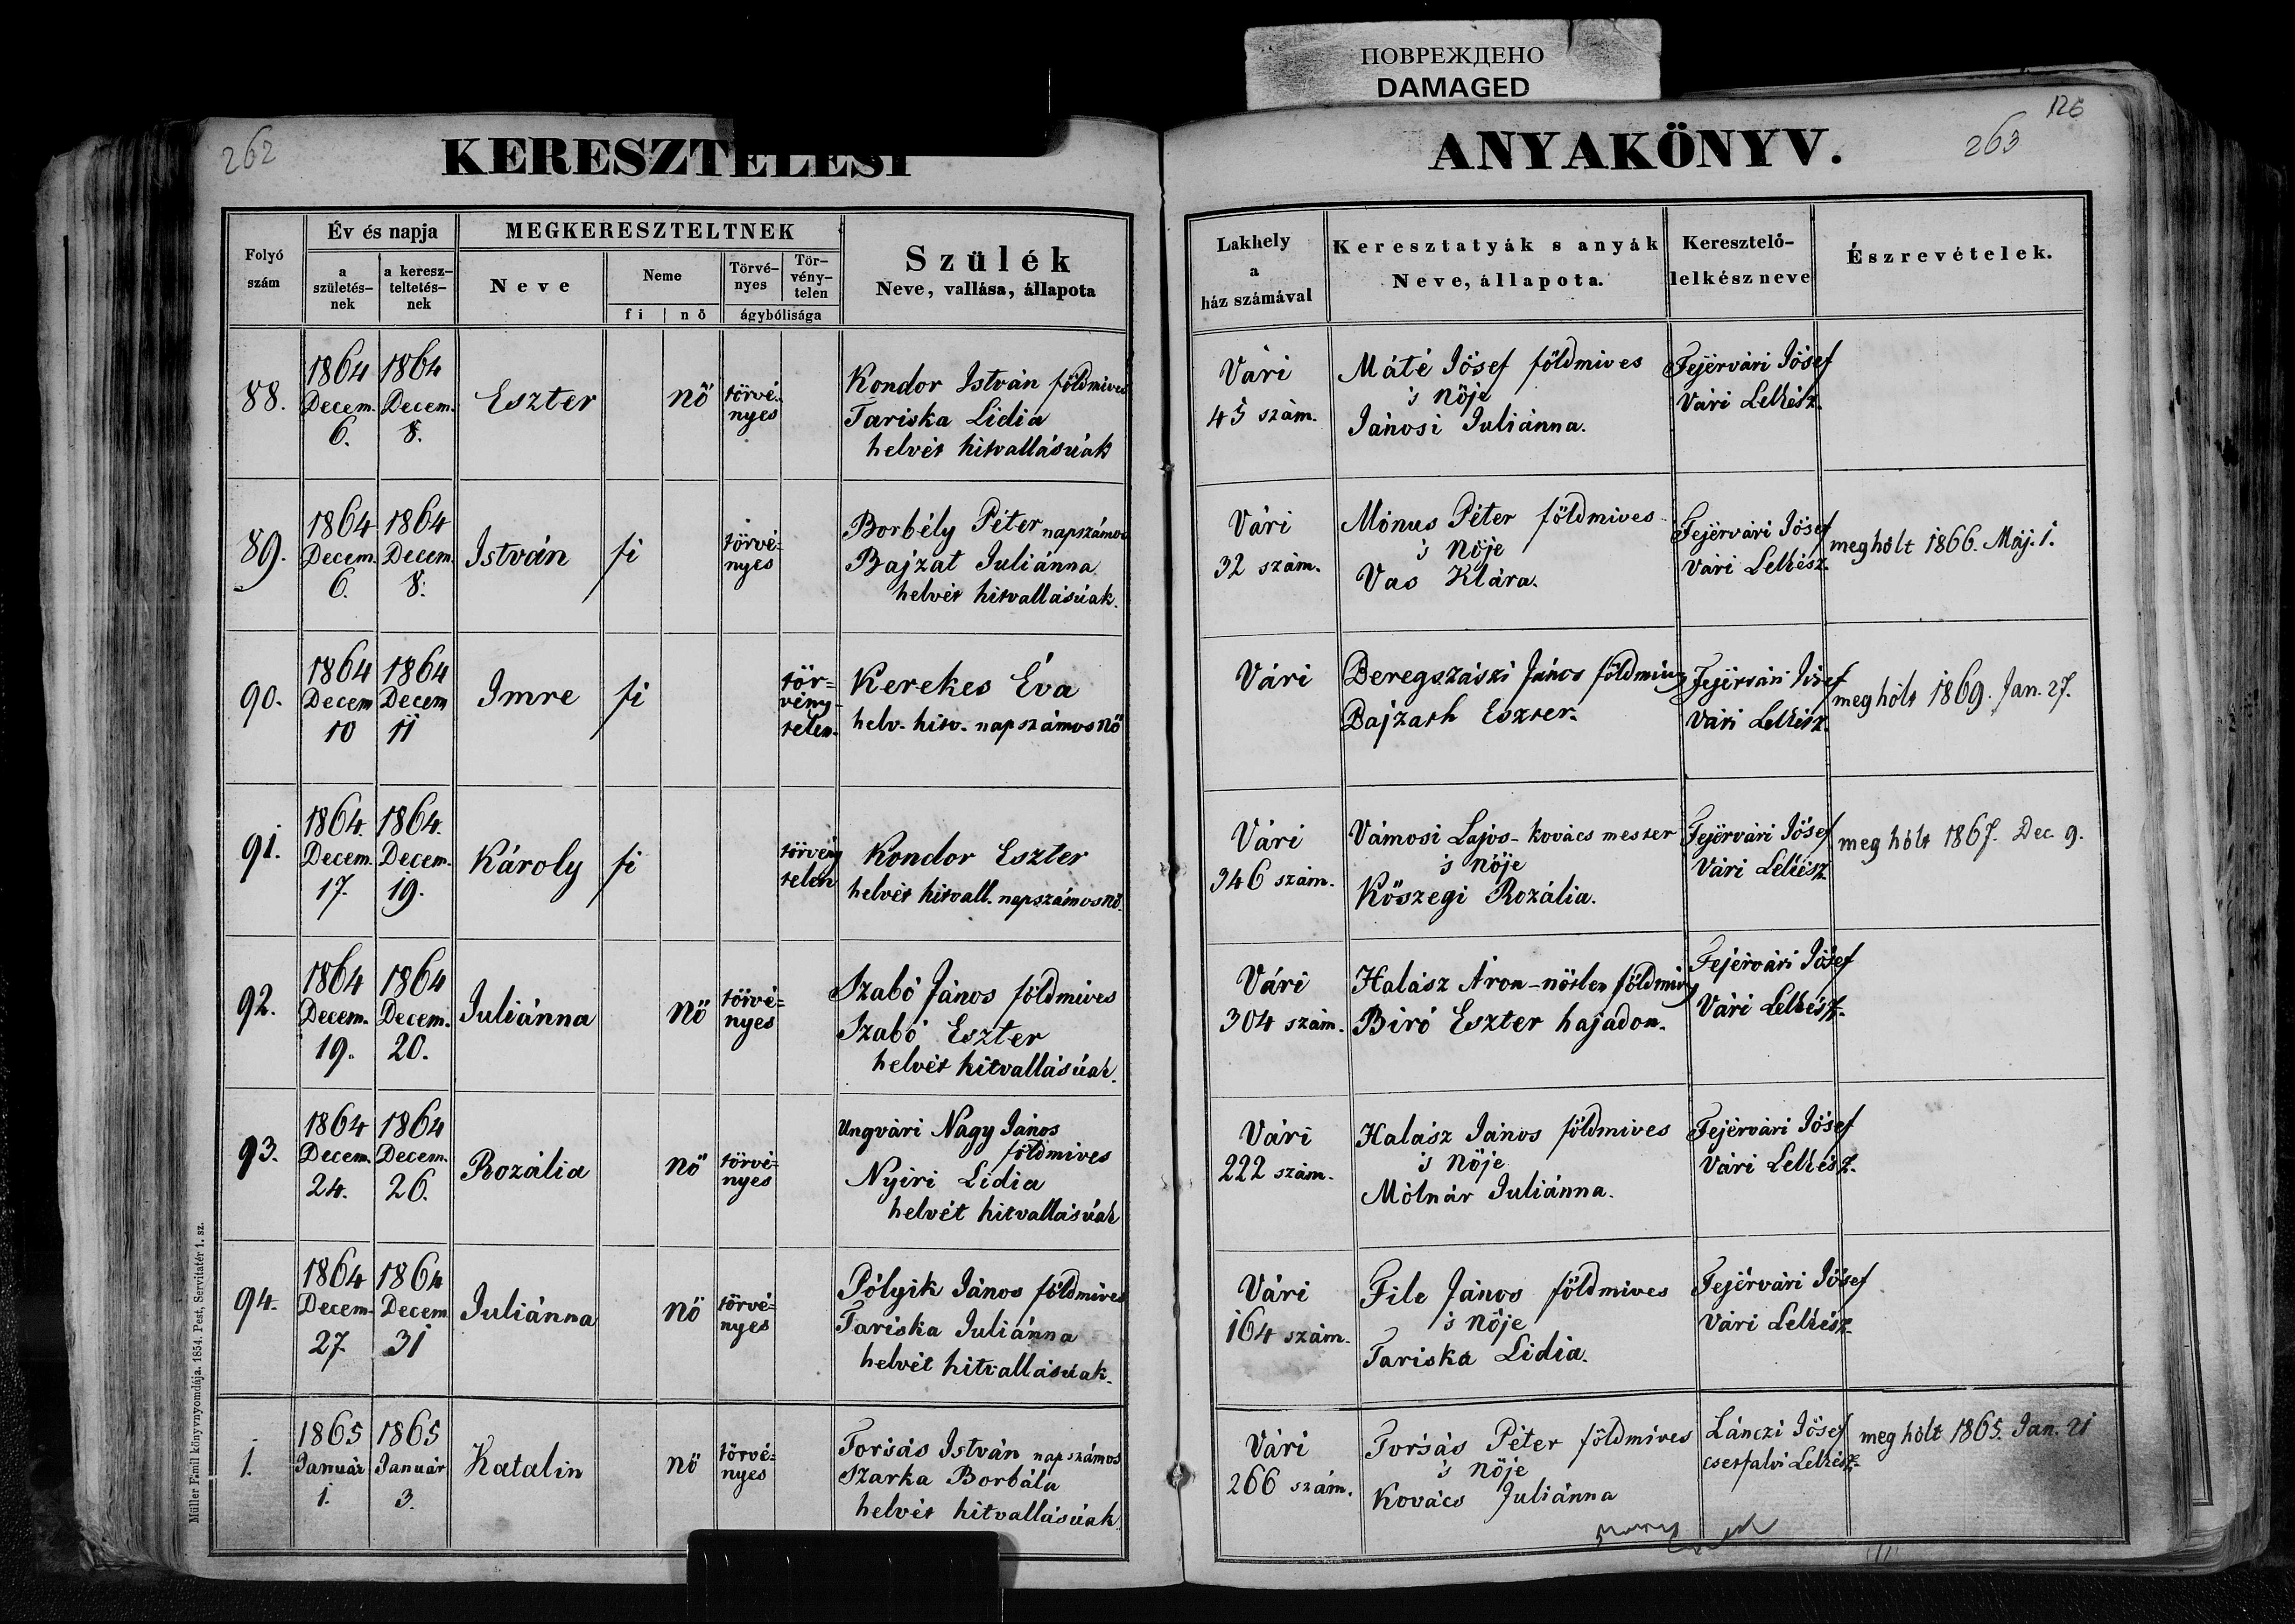 ПОВРЕЖДЕНО
DAMAGED
262
KERESZTELESI
ANYAKÖNYV.
263
126
Folyó szám
Év és napja
a születés-nek
a keresz-teltetés-nek
MEGKERESZTELTNEK
Neve
Neme
fi
nő
Törvé-nyes
Tör-vény-telen
ágybólisága
Szülék
Neve, vallása, állapota
Lakhely
a
ház számával
Keresztatyák s anyák
Neve, állapota.
Keresztelő-
lelkész neve
Észrevételek.
88.
1864 Decem. 6.
1864 Decem. 8.
Eszter
nő
törvé-nyes
Kondor István földmives
Tariska Lidia
helvét hitvallásúak
Vári
45 szám.
Máté Jósef földmives
's nöje
Jánosi Juliánna.
Fejérvári Jósef
Vári Lelkész.
89.
1864 Decem. 6.
1864 Decem. 8.
István
fi
törvé-nyes
Borbély Péter napszámos
Bajzat Juliánna
helvét hitvallásúak.
Vári
32 szám.
Mónus Péter földmives
's Nöje
Vas Klára.
Fejérvári Jósef
Vári Lelkész.
meghólt 1866. Máj. 1.
90.
1864 Decem 10
1864 Decem 11
Imre
fi
tör-vény-telen
Kerekes Éva
helv. hitv. napszámosnő
Vári
Beregszászi János földmives
Bajzath Eszter.
Fejérvári Jósef
Vári Lelkész.
meghólt 1869. Jan. 27.
91.
1864. Decem. 17.
1864. Decem. 19.
Károly
fi
törvény telen
Kondor Eszter
helvét hitvall. napszámosnő.
Vári
346 szám.
Vámosi Lajos - kovács mester
's nöje
Kőszegi Rozália.
Fejérvári Jósef
Vári Lelkész
meg hólt 1867. Dec. 9.
92.
1864 Decem. 19.
1864 Decem. 20.
Juliánna
Nő
törvé-nyes
Szabó János földmives
Szabó Eszter
helvét hitvallásúak.
Vári
304 szám.
Halász Áron - nőtlen földmives
Biró Eszter hajadon.
Fejérvári Jósef
Vári Lelkész.
93.
1864 Decem. 24.
1864 Decem. 26.
Rozália
nő
törvé-nyes
Ungvári Nagy János
földmives
Nyiri Lidia
helvét hitvallásúak
Vári
222 szám.
Halász János földmives
's Nöje
Mólnár Juliánna.
Fejérvári Jósef
Vári Lelkész.
94.
1864 Decem. 27.
1864 Decem 31
Juliánna
nő
törvé-nyes
Pólyik János földmives
Tariska Juliánna
helvét hitvallásúak.
Vári
164 szám.
File János földmives
's Nöje
Tariska Lidia.
Fejérvári Jósef
Vári Lelkész.
1.
1865 Január 1.
1865 Január 3.
Katalin
nő
törvé-nyes
Forsás István napszámos
Szarka Borbála
helvét hitvallásúak
Vári
266 szám.
Forsás Péter földmives
's nöje
Kovács Juliánna
Lánczi Jósef
csetfalvi Lelkész.
meg hólt 1865. Jan. 21
Müller Emil könyvnyomdája. 1854. Pest, Servitatér 1. sz.